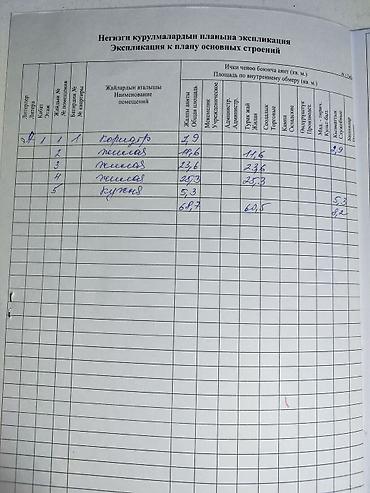 Негизги курулмалардын планына экспликация
Экспликация к плану основных строений
Ички ченөө боюнча аянт (кв. м.)
Площадь по внутреннему обмеру (кв. м.)
Литерлер
Литера
Кабат
Этаж
Жайдын №
№ помещения
Батирдин №
№ квартиры
Жайлардын аталышы
Наименование
помещений
Жалпы аянты
Общая площадь
Мекемелик
Учрежденческие
Администр.
Администр.
Турак жай
Жилая
Складдык
Торговые
Кампа
Складские
Өндүрүштүк
Производст.
А 1 1 коридор 2,9 2,9
2 жилая 11,6 11,6
3 жилая 23,6 23,6
4 жилая 25,3 25,3
5 кухня 5,3 5,3
68,7 60,5 8,2